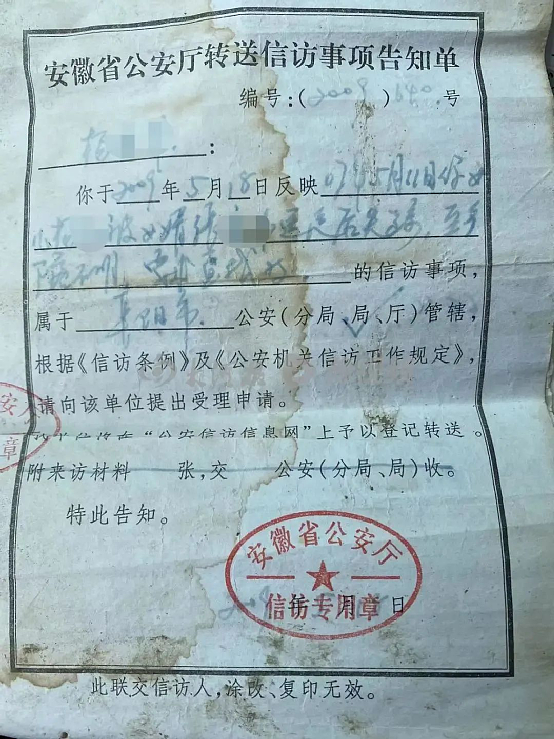 安徽省公安厅转送信访事项告知单
编号:(2009)640号
:
你于2009年5月18日反映07年5月11日你女
儿 被女婿张 后失踪,至今
下落不明,要求查找女
的信访事项,
属于 市 公安(分局、局、厅)管辖,
根据《信访条例》及《公安机关信访工作规定》,
请向该单位提出受理申请。
“公安信访信息网”上予以登记转送。
附来访材料 张,交 公安(分局、局)收。
特此告知。
安徽省公安厅
信访专用章
年 月 日
此联交信访人,涂改、复印无效。